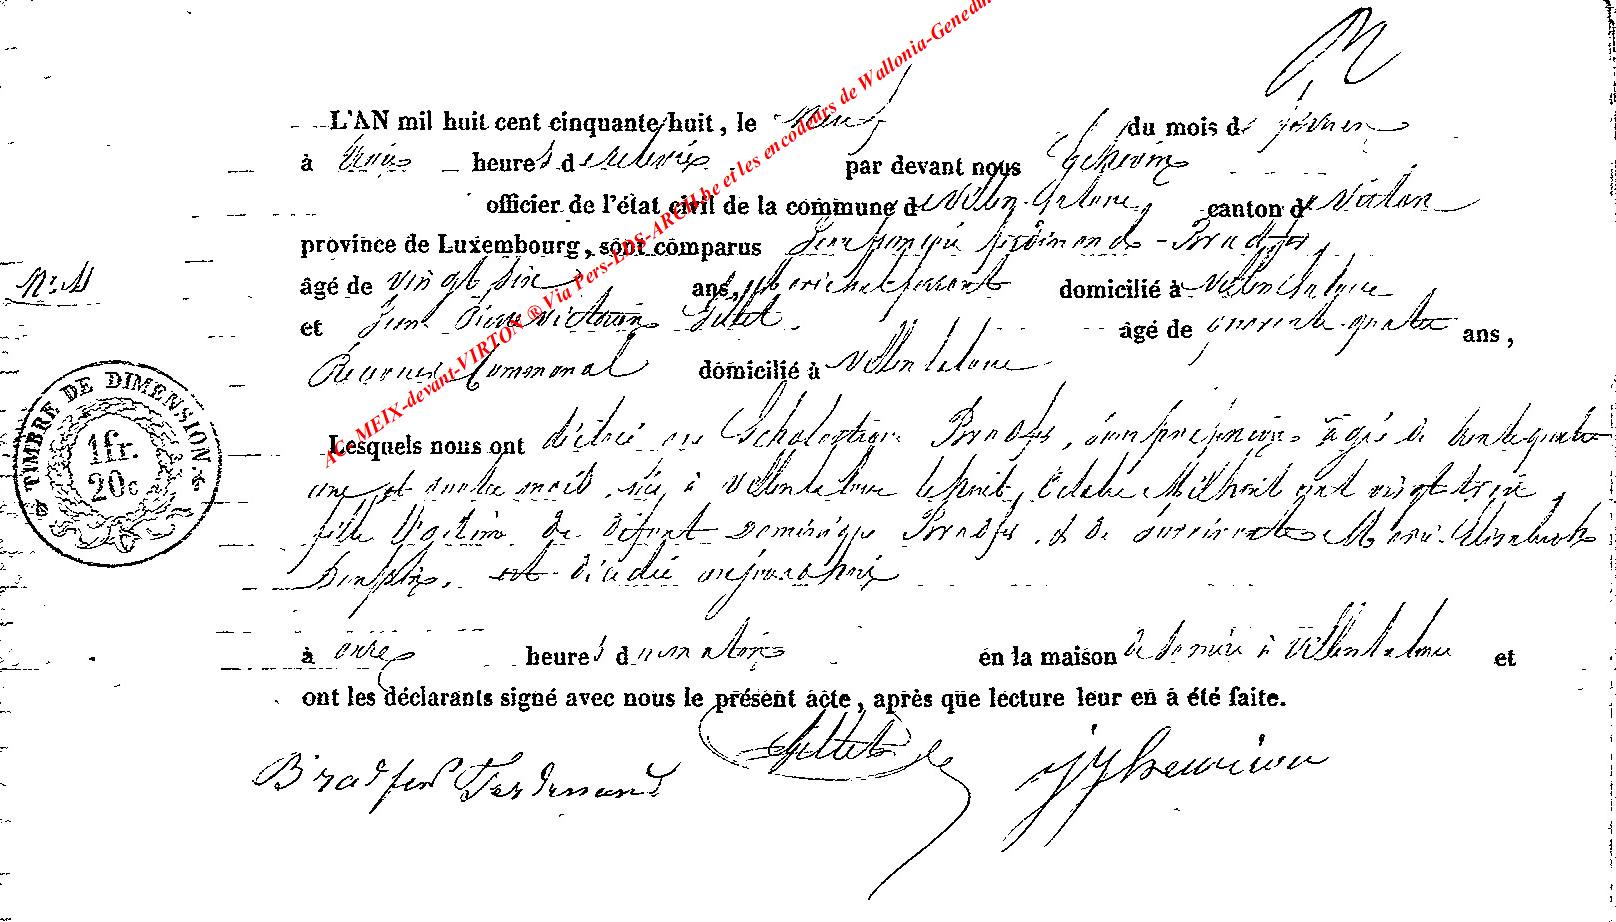 L'AN mil huit cent cinquante huit, le neuf du mois de février
à trois heures de relevée par devant nous Echevin
officier de l'état civil de la commune de Villers-Latour canton de Virton
province de Luxembourg, sont comparus Ferdinand Bradfer
N: 4
âgé de vingt six ans, maréchal ferrant domicilié à Villers latour
et Jean Pierre Victorin Gillet âgé de quarante quatre ans,
Receveur Communal domicilié à Villers latour
TIMBRE DE DIMENSION.
1fr.
20c
Lesquels nous ont déclaré que Scholastique Bradfer, âgée de trente quatre
ans et quatre mois, née à Villers latour le huit Octobre Mil huit cent vingt trois,
fille légitime de défunt Dominique Bradfer, & de survivante Marie Elisabeth
est décédée aujourd'hui
à onze heures du matin en la maison de sa mère à Villers latour et
ont les déclarants signé avec nous le présent acte, après que lecture leur en à été faite.
Bradfer Ferdinand Gillet
AC-MEIX-devant-VIRTON ® Via Pers-EDS-ARCH.be et les encodeurs de Wallonia-Genedin